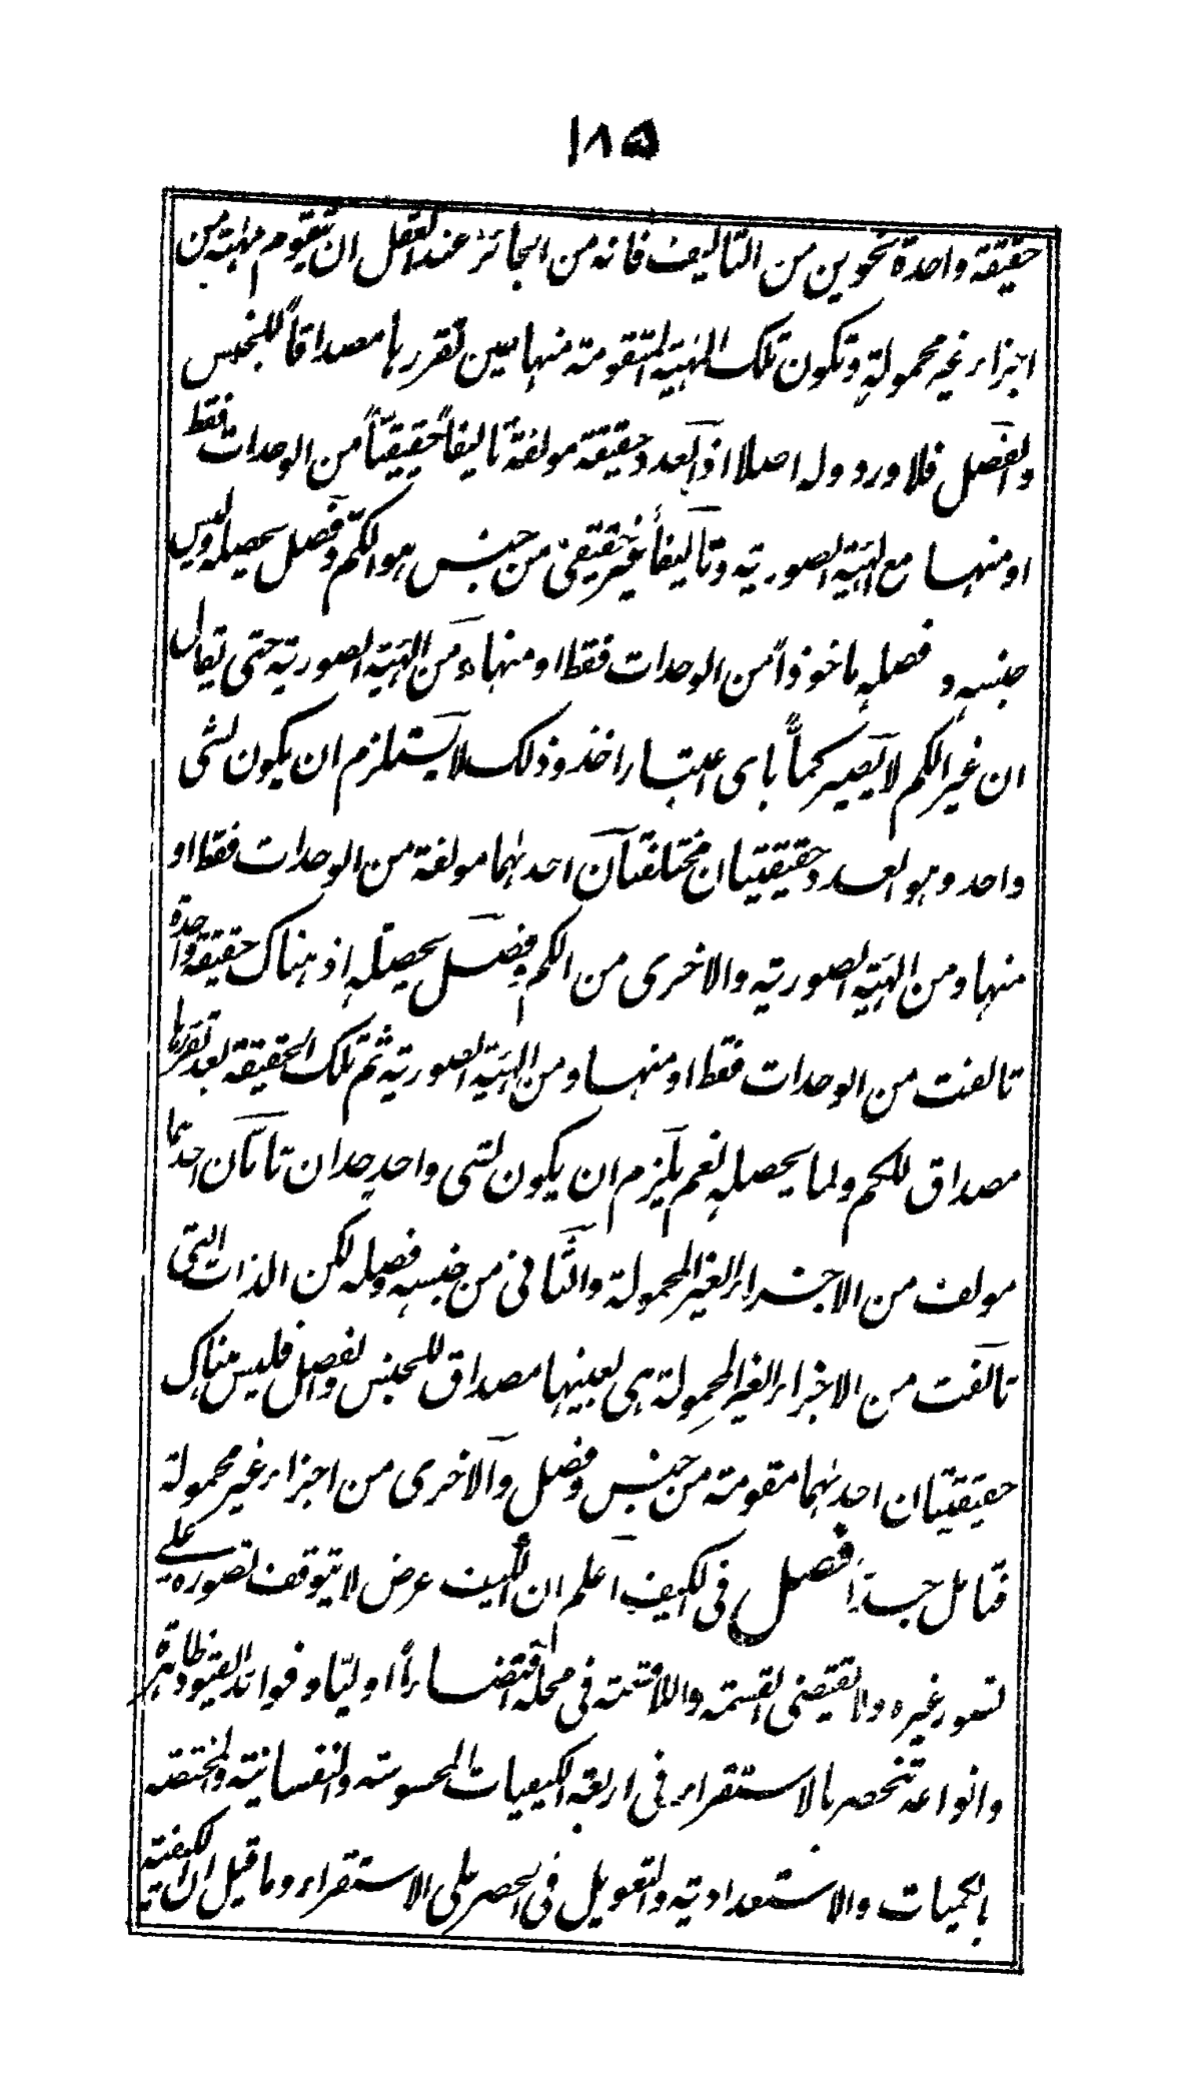 ١٨٥
حقيقة واحدة بنحوين من التاليف فانه من الجائز عند العقل ان يتقوم مهية من
اجزاء غير محمولة وتكون تلك المهية المتقومة منها بعين تقررها مصداقاً للجنس
والفصل فلا ورود له اصلا اذ العدد حقيقة مولفة تاليفاً حقيقيّاً من الوحدات فقط
او منها مع الهيئة الصورية وتاليفاً غير حقيقى من جنس هو الكم وفصل يحصله وليس
جنسه وفصله ماخوذاً من الوحدات فقط او منها ومن الهيئة الصورية حتى يقال
ان غير الكم لا يصير كمّاً باى اعتبار اخذ وذلك لا يستلزم ان يكون لشى
واحد وهو العدد حقيقيتان مختلفتان احدٰهما مولفة من الوحدات فقط او
منها ومن الهيئة الصورية والاخرى من الكم وفصل يحصله اذ هناك حقيقة واحدة
تالفت من الوحدات فقط او منها ومن الهيئة الصورية ثم تلك الحقيقة بعد تقررها
مصداق للكم ولما يحصله نعم يلزم ان يكون لشى واحد حدان تامان احدهما
مولف من الاجزاء الغير المحمولة والثانى من جنسه وفصله لكن الذات التى
تالفت من الاجزاء الغير المحمولة هى بعينها مصداق للجنس والفصل فليس هناك
حقيقيتان احدٰهما مقومة من جنس وفصل والاخرى من اجزاء غير محمولة
فتامل جداً فصل فى الكيف اعلم ان الكيف عرض لا يتوقف تصوره على
تصور غيره ولا يقتضى القسمة واللاقسمة فى محله اقتضاءاً اوليّا وفوائد القيود ظاهرة
وانواعه تنحصر بالاستقراء فى اربعة الكيفيات المحسوسة والنفسانية والمختصة
بالكميات والاستعدادية والتعويل فى الحصر على الاستقراء وما قيل ان الكيفية